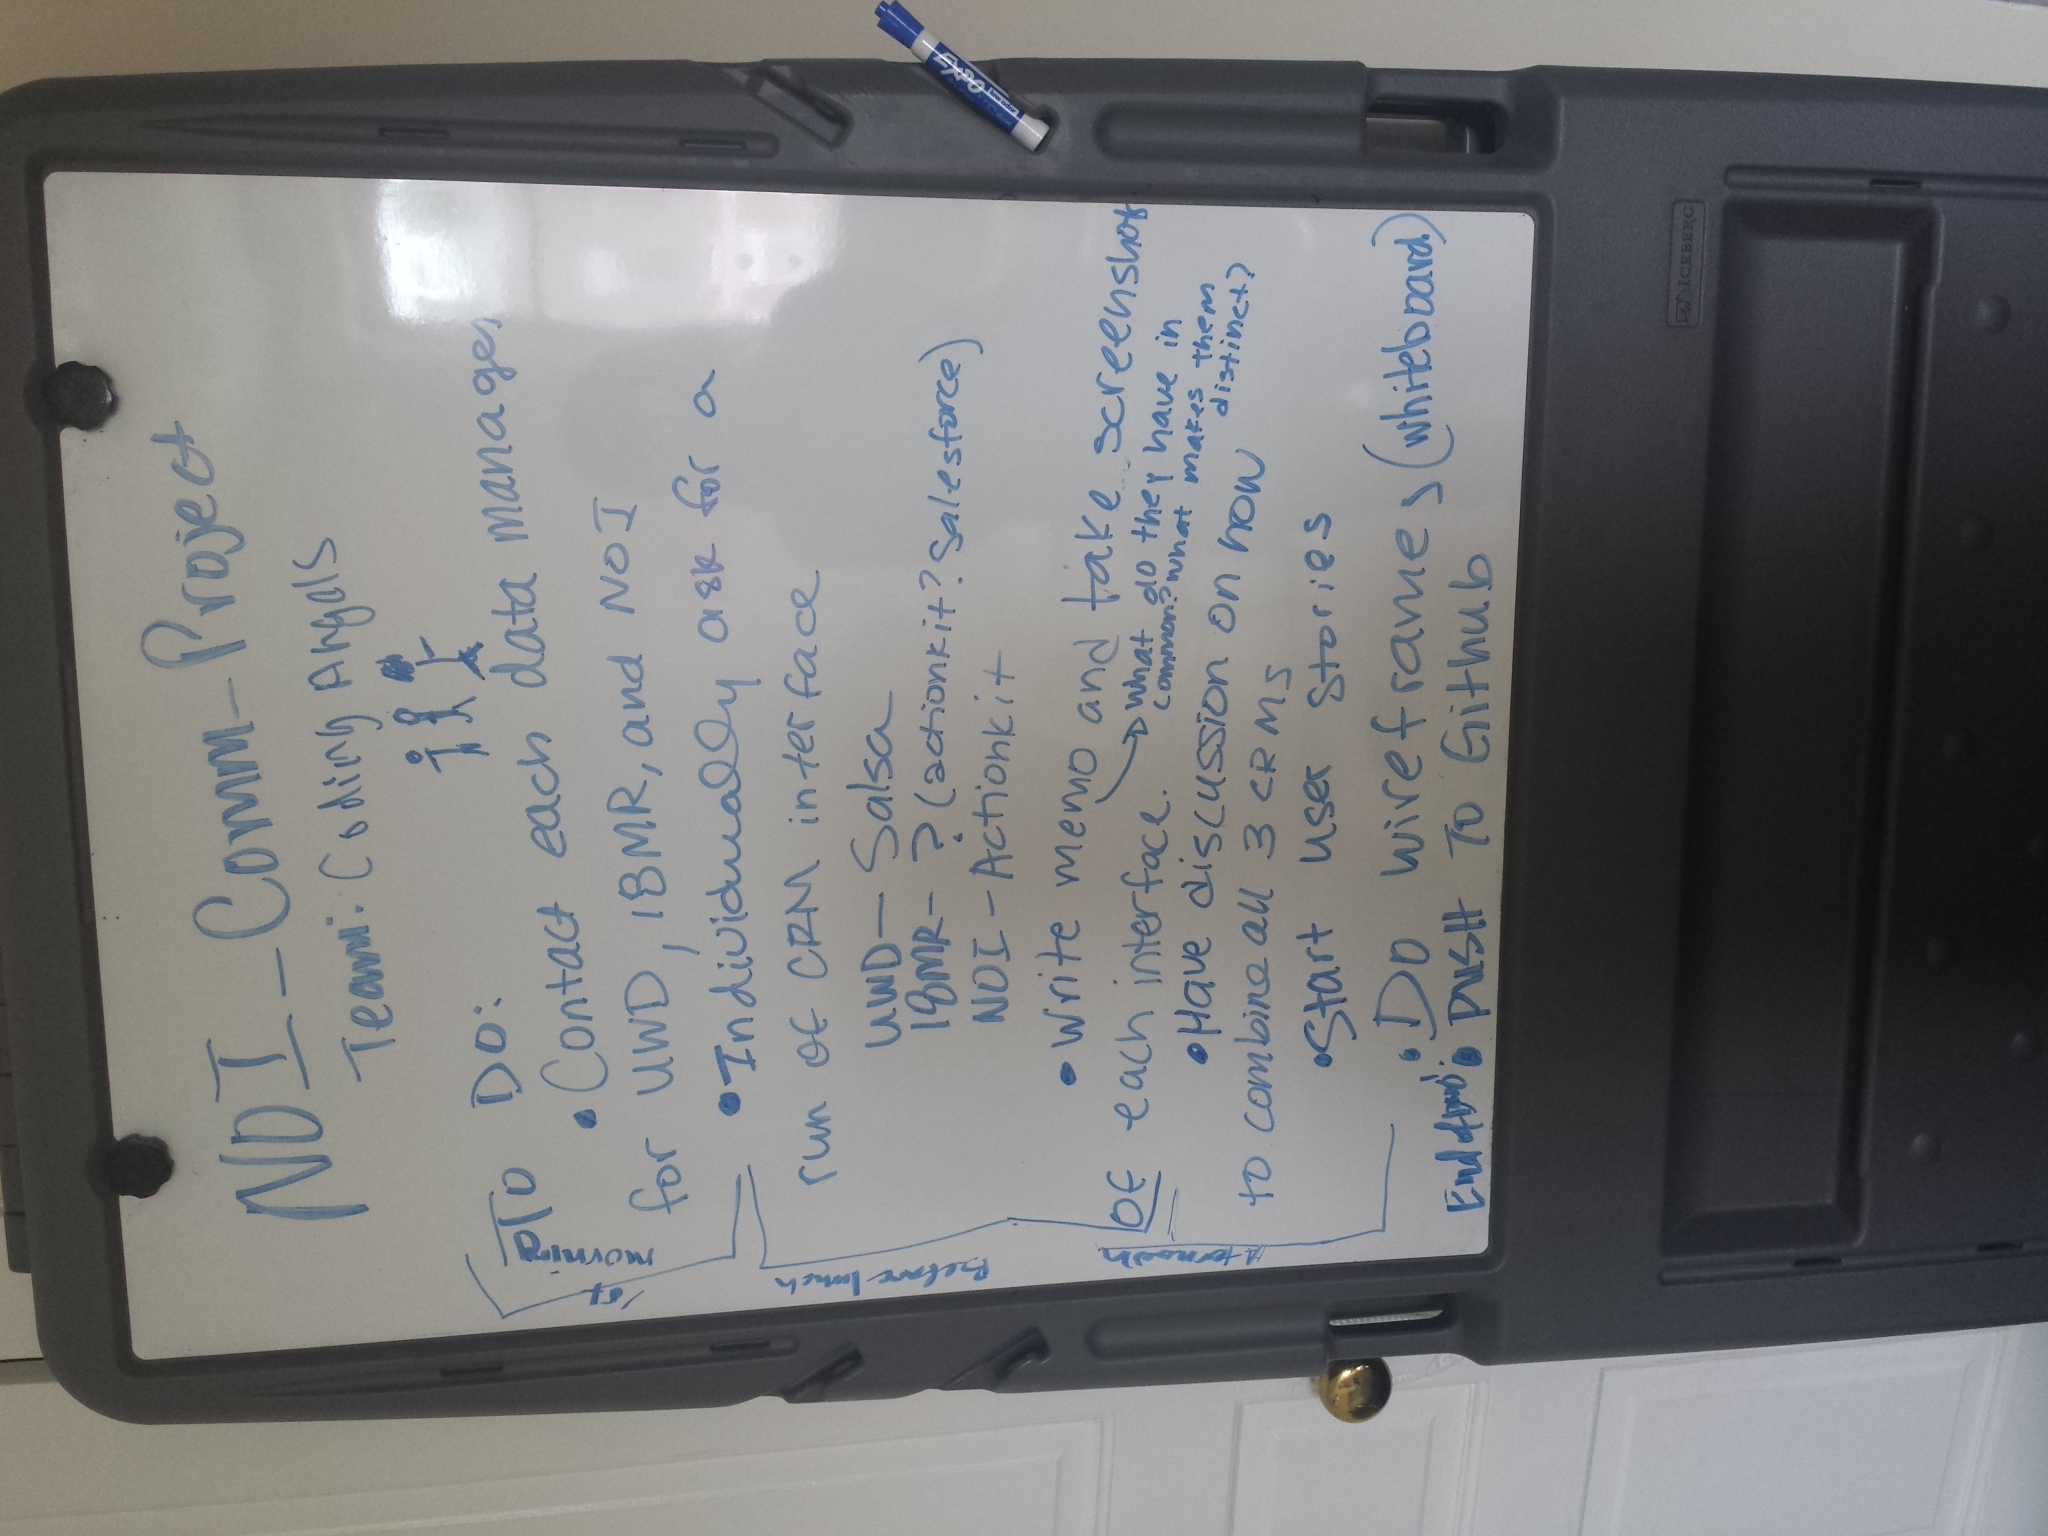 NOI_Comm_Project
Team: Coding Angels
To Do:
• Contact each data manager
for UWD, 18MR, and NOI
• Individually ask for a
run of CRM interface
UWD— Salsa
18MR- ? (actionkit? Salesforce)
NOI - Actionkit
• Write memo and take screenshots
of each interface.
What do they have in
common? What makes them
distinct?
• Have discussion on how
to combine all 3 CRMS
• Start user stories
• Do wireframes (whiteboard)
• PUSH To Github
morning
Before lunch
Afternoon
End of
EXPO
ICEBERG